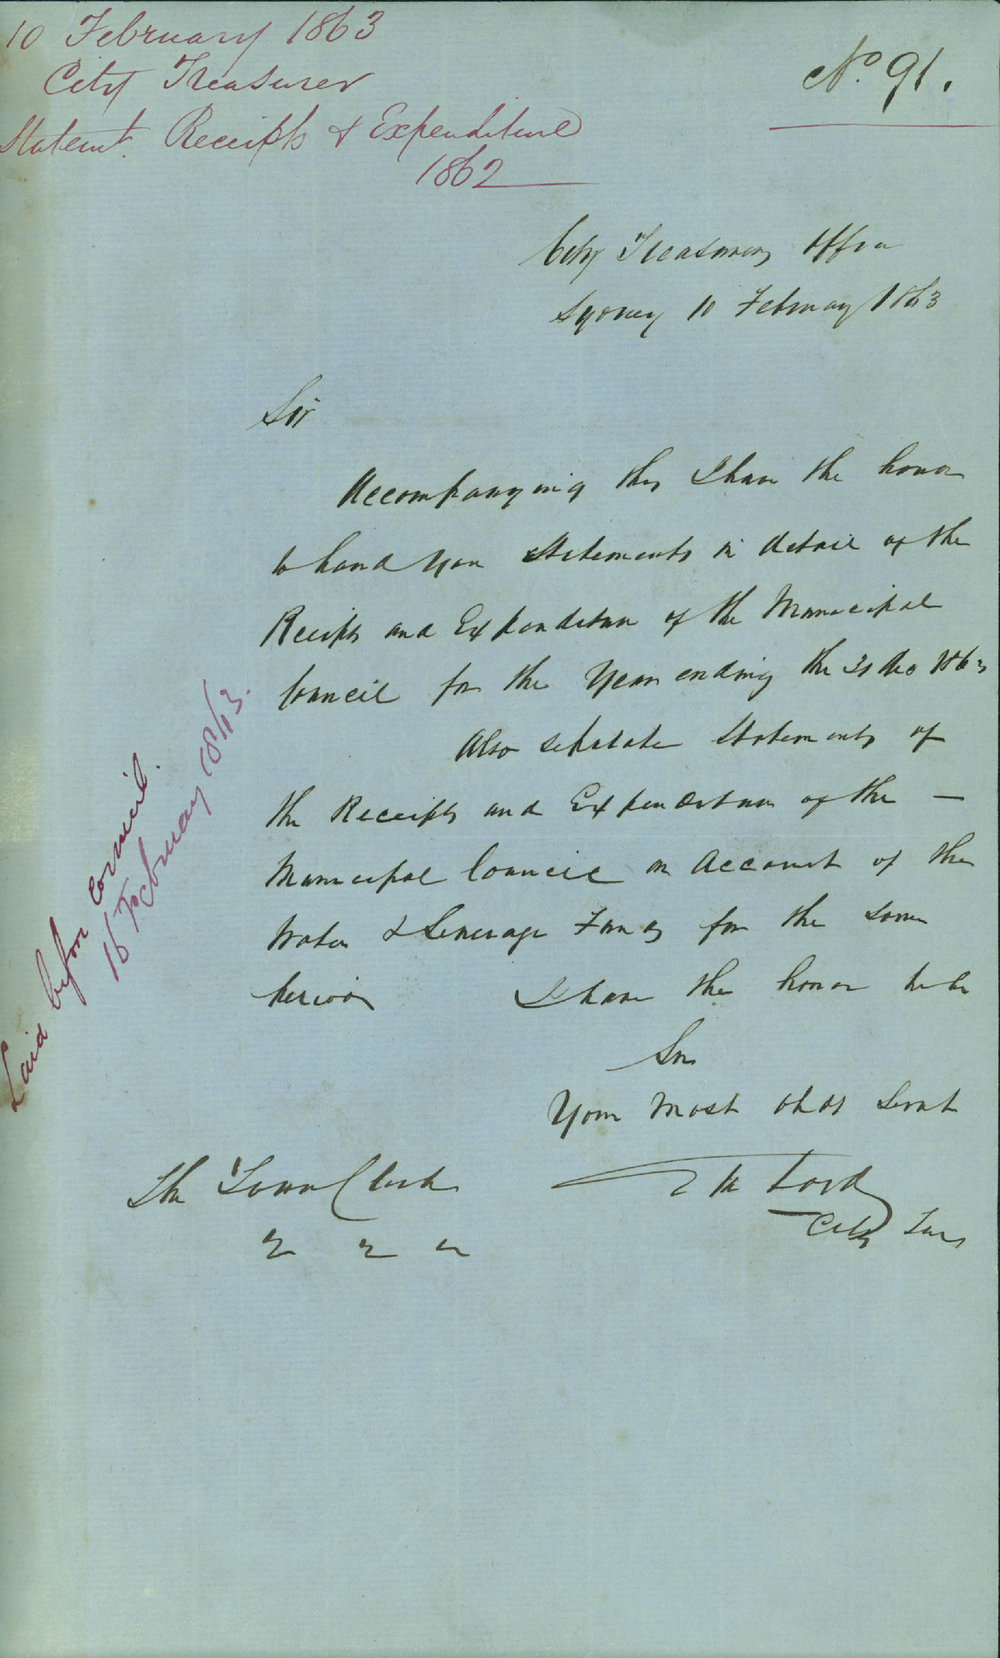 10 February 1863
City Treasurer
Statemt. Receipts & Expenditure
1862
No. 91.
City Treasurers Office
Sydney 10 February 1863
Sir
Accompanying this I have the honor
to hand you Statements in detail of the
Receipts and Expenditure of the Municipal
Council for the Year ending the 31 Dec 1863
Also separate Statements of
the Receipts and Expenditure of the —
Municipal Council on Account of the
Water & Sewerage Funds for the same
period I have the honor to be
Sir
Your most obdt Servt
The Town Clerk
City Trears
Laid before Council.
16 February 1863.